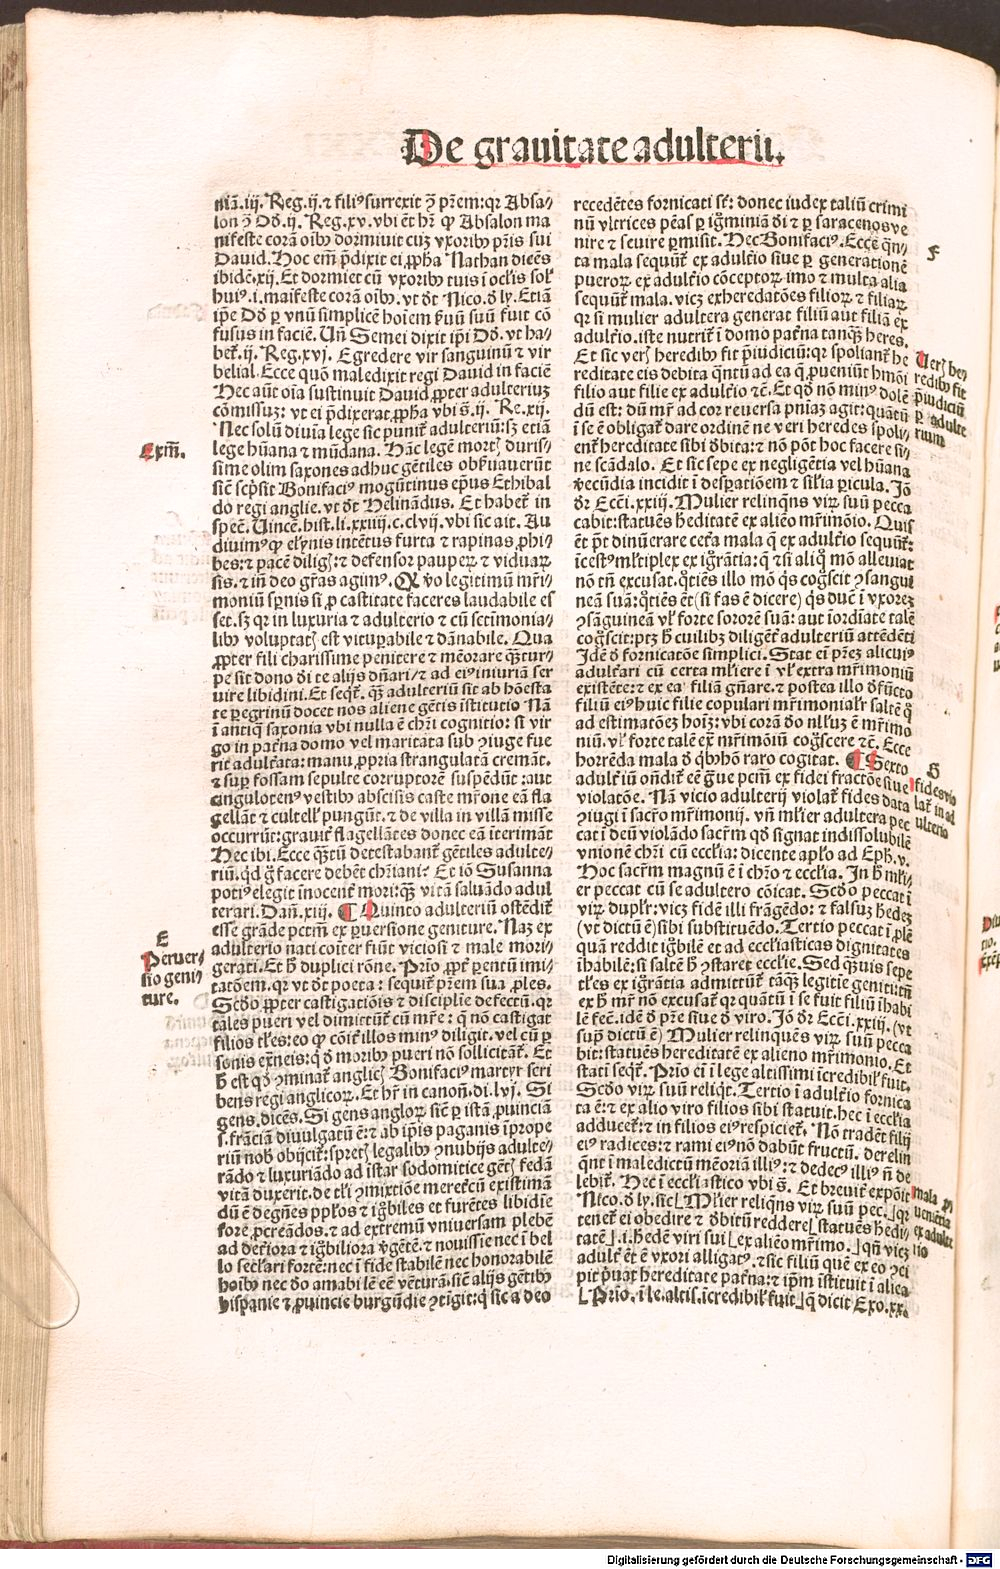 De grauitate adulterii.
niā.iij. Reg.ij. ⁊ filiꝰ surrexit ꝯ pr̄em: qꝛ Absa⸗
lon ꝯ Dd̄.ij. Reg.xv. vbi ēt hr̄ ꝙ Absalon ma
nifeste corā oībꝫ dormiuit cuꝫ vxoribꝫ pr̄is sui
Dauid. Hoc em̄ p̄dixit ei ꝓpha Nathan dicēs
ibidē.xij. Et dormiet cū vxoribꝫ tuis ī oclis sol̕
huiꝰ.i.maifeste corā oībꝫ. vt dt̄ Nico.ꝺ ly. Etiā
ip̄e Dd̄ ꝑ vnū simplicē hoīem ẜuū suū fuit cō
fusus in faciē. Un̄ Semei dixit ip̄i Dd̄. vt ha⸗
bet̄.ij. Reg.xvj. Egredere vir sanguinū ⁊ vir
belial. Ecce quō maledixit regi Dauid in faciē
Hec aūt oīa sustinuit Dauid ꝓpter adulteriuꝫ
cōmissuꝫ: vt ei p̄dixerat ꝓpha vbi s̄.ij. Re.xij.
Nec solū diuīa lege sic punit̄ adulteriū: sꝫ etiā
lege hūana ⁊ mūdana. Hāc legē mortꝭ duris⸗
sime olim saxones adhuc gētiles obẜuauerūt
sic̄ scp̄sit Bonifaciꝰ mogūtinus ep̄us Ethibal
do regi anglie. vt dt̄ Helinādus. Et habet̄ in
specl̕. Uincē. hist. li.xxiiij.c.clvij. vbi sic ait. Au
diuimꝰ ꝙ elynis intētus furta ⁊ rapinas ꝓhi⸗
bes: ⁊ pacē diligꝭ: ⁊ defensor pauperꝝ ⁊ viduaꝝ
sis. ⁊ in̄ deo gr̄as agimꝰ. Q̄ vo legitimū mr̄i⸗
moniū sp̄nis si ꝓ castitate faceres laudabile es
set. sꝫ qꝛ in luxuria ⁊ adulterio ⁊ cū sctīmonia⸗
libꝫ voluptatꝭ est vitupabile ⁊ dānabile. Qua
ꝓpter fili charissime penitere ⁊ mēorare qꝫ tur⸗
pe sit dono di te alijs dn̄ari/⁊ ad eiꝰ iniuriā ser
uire libidini. Et seqt̄. qꝫ adulteriū sit ab hōesta
te peregrinū docet nos aliene gētis īstitutio Nā
ī antiq̄ saxonia vbi nulla ē chr̄i cognitio: si vir
go in pat̄na domo vel maritata sub ꝯiuge fue
rit adulťata: manu ꝓpria strangulatā cremāt.
⁊ suꝑ fossam sepulte corruptorē suspēdūt: aut
cingulotenꝰ vestibꝫ abscisis caste mr̄one eā fla
gellāt ⁊ cultell̕ pungūt. ⁊ de villa in villā misse
occurrūt: grauiť flagellātes donec eā īterimāt
Hec ibi. Ecce qꝫtū detestabant̄ gētiles adulte⸗
riū. qd ḡ facere debēt chr̄iani? Et iō Susanna
potiꝰ elegit īnocent̄ mori: qꝫ vitā saluādo adul
terari. Dan̄.xiij. ¶ Quinto adulteriū ostēdit̄
esse grāde pctm̄ ex ꝑuersione geniture. Naꝫ ex
adulterio nati coīter fiūt viciosi ⁊ male mori⸗
gerati. Et h̄ duplici rōne. Prīo ꝓpt̄ ꝑentū imi⸗
tatōem. qꝛ vt dt̄ poeta: sequit̄ pr̄em sua ꝓles.
Scd̄o ꝓpter castigatiōis ⁊ discipl̕ie defectū. qꝛ
tales pueri vel dimittūt̄ cū mr̄e: q̄ nō castigat
filios tl̕es: eo ꝙ cōit̄ illos minꝰ diligit. vel cū ꝑ
sonis ext̄neis: q̄ ꝺ moribꝫ pueri nō sollicitāt̄. Et
h̄ est qd ꝯminat̄ anglicꝭ Bonifaciꝰ martyr scri
bens regi anglicoꝝ. Et hr̄ in canoñ.di.lvj. Si
gens. dicēs. Si gens angloꝝ sic̄ ꝑ istā ꝓuinciā
s. frāciā diuulgatū ē: ⁊ ab ip̄is paganis īprope
riū nobꝫ obijcit̄: spretꝭ legalibꝫ ꝯnubijs adulte⸗
rādo ⁊ luxuriādo ad īstar sodomitice gētꝭ fedā
vitā duxerit. de tl̕i ꝯmixtiōe meret̄cū existimā
dū ē degn̄es pplos ⁊ igbiles ⁊ furētes libidīe
fore ꝓcreādos. ⁊ ad extremū vniuersam plebē
ad det̄iora ⁊ igbiliora ꝟgētē. ⁊ nouissīe nec ī bel
lo sec̄lari fortē: nec ī fide stabilē nec honorabilē
hoībꝫ nec ꝺo amabilē eē vēturā. sic̄ alijs gētibꝫ
hispanie ⁊ ꝓuincie burgūdie ꝯtigit: q̄ sic a deo
recedētes fornicati st̄: donec iudex taliū crimi
nū vltrices pēas ꝑ igminiā ꝺi ⁊ ꝑ saracenos ve
nire ⁊ seuire ꝑmisit. Hec Bonifaciꝰ. Ecce qn̄⸗
ta mala sequūt̄ ex adulťio siue ꝑ generationē
pueroꝝ ex adulťio cōceptoꝝ. imo ⁊ multa alia
sequūt̄ mala. vicꝫ exheredatōes filioꝝ ⁊ filiaꝝ
qꝛ si mulier adultera generat filiū aut filiā ex
adulťio. iste nutrit̄ ī domo pat̄na tanqꝫ heres.
Et sic verꝭ heredibꝫ fit p̄iudiciū: qꝛ spoliant̄ he
reditate eis debita qn̄tū ad ea q̄ ꝓueniūt hmōi
filio aut filie ex adulťio ⁊c̄. Et qd nō minꝰ dolē
dū est: dū mr̄ ad cor reuersa pn̄iaꝫ agit: quātū
ī se ē obligat̄ dare ordinē ne veri heredes spoli⸗
ent̄ hereditate sibi ꝺbita: ⁊ nō pōt hoc facere si⸗
ne scādalo. Et sic sepe ex negligētia vel hūana
ꝟecūdia incidit ī despatiōem ⁊ sil̕ia ꝑicula. Jō
dr̄ Eccī.xxiij. Mulier relinqn̄s virꝝ suū pecca
cabit: statuēs h̄editatē ex aliēo mr̄imōio. Quis
ēt p̄t dinūerare ceťa mala q̄ ex adulťio sequūt̄:
īcestꝰ ml̕tiplex ex igrātia: q̄ ⁊ si aliq̄ mō alleuiat
nō tn̄ excusat. q̄tiēs illo mō qs cogscit ꝯsangui
neā suā: q̄tiēs ēt (si fas ē dicere) qs ducē ī vxoreꝫ
ꝯsāguineā vl̕ forte sororē suā: aut īordiate talē
cogscit: ptꝫ h̄ cuilibꝫ diligēt̄ adulteriū attēdēti
Idē ꝺ fornicatōe simplici. Stat ei pr̄eꝫ alicuiꝰ
adulťari cū certa ml̕iere ī vl̕ extra mr̄imoniū
existēte: ⁊ ex ea filiā gn̄are. ⁊ postea illo ꝺfūcto
filiū eiꝰ huic filie copulari mr̄imonialr̄ saltē q̄
ad estimatōeꝫ hoiꝫ: vbi corā ꝺo nl̕luꝫ ē mr̄imo
niū. vl̕ forte talē ex mr̄imōiū cogscere ⁊c̄. Ecce
horrēda mala ꝺ qbꝫ hō raro cogitat. ¶ Sexto
adulťiū on̄dit̄ eē g̈ue pctm̄ ex fidei fractōe siue
violatōe. Nā vicio adulterij violat̄ fides data
ꝯiugi ī sacro mr̄imonij. vn̄ ml̕ier adultera pec
cat ī deū violādo sacr̄m qd signat indissolubilē
vnionē chr̄i cū eccl̕ia: dicente apl̕o ad Eph̄.v.
Hoc sacr̄m magnū ē ī chr̄o ⁊ eccl̕ia. In h̄ ml̕i⸗
er peccat cū se adultero cōicat. Scd̄o peccat ī
virꝝ duplr̄: vicꝫ fidē illi frāgēdo: ⁊ falsuꝫ h̄edeꝫ
(vt dictū ē) sibi substituēdo. Tertio peccat ī ꝓlē
quā reddit igbilē ⁊ ad eccl̕iasticas dignitates
īhabilē: si saltē h̄ ꝯstaret eccl̕ie. Sed qꝫuis sepe
tl̕es ex igrātia admittūt̄ tāqꝫ legitīe genit: tn̄
ex h̄ mr̄ nō excusat̄ qꝛ quātū ī se fuit filiū īhabi
lē fec. idē ꝺ pr̄e siue ꝺ viro. Jō dr̄ Eccī.xxiij. (vt
supꝰ dictū ē) Mulier relinquēs virꝝ suū pecca
bit: statuēs hereditatē ex alieno mr̄imonio. Et
stati seqt̄. Prīo ei ī lege altissimi īcredibil̕ fuit.
Scd̄o virꝝ suū reliqt̄. Tertio ī adulťio fornica
ta ē: ⁊ ex alio viro filios sibi statuit. hec ī eccl̕ia
adducet̄: ⁊ in filios eiꝰ respiciet̄. Nō tradēt filij
eiꝰ radices: ⁊ rami eiꝰ nō dabūt fructū. derelin
qn̄t ī maledictū mēoriā illiꝰ: ⁊ dedecꝰ illiꝰ n̄ de
lebit̄. Hec ī eccl̕iastico vbi s̄. Et breuiť expōit
Nico.ꝺ ly. sic⌊ Ml̕ier reliqn̄s virꝝ suū pec.⌋qꝛ
tenet̄ ei obedire ⁊ ꝺbitū reddere⌊ statuēs h̄edi⸗
tatē⌋.i. h̄edē viri sui⌊ex aliēo mr̄imo.⌋qn̄ vicꝫ
adult̄ ēt ē vxori alligatꝰ. ⁊ sic filiū quē ex eo ꝯci
pit p̄uat hereditate pat̄na: ⁊ ip̄m īstituit ī alica
⌊Prīo. ī le. altis. īcredibil̕ fuit⌋q̄ dicit Exo.xx.
Exm̄.
E
Peruer⸗
sio geni⸗
ture.
F
Uerꝭ he⸗
redibꝫ fit
p̄iudiciū
ꝑ adulte
rium
G
fides vio
lat̄ in ad
ulterio
mala ꝓ
ueniētia
ex adulte
rio
Digitalisierung gefördert durch die Deutsche Forschungsgemeinschaft - DFG